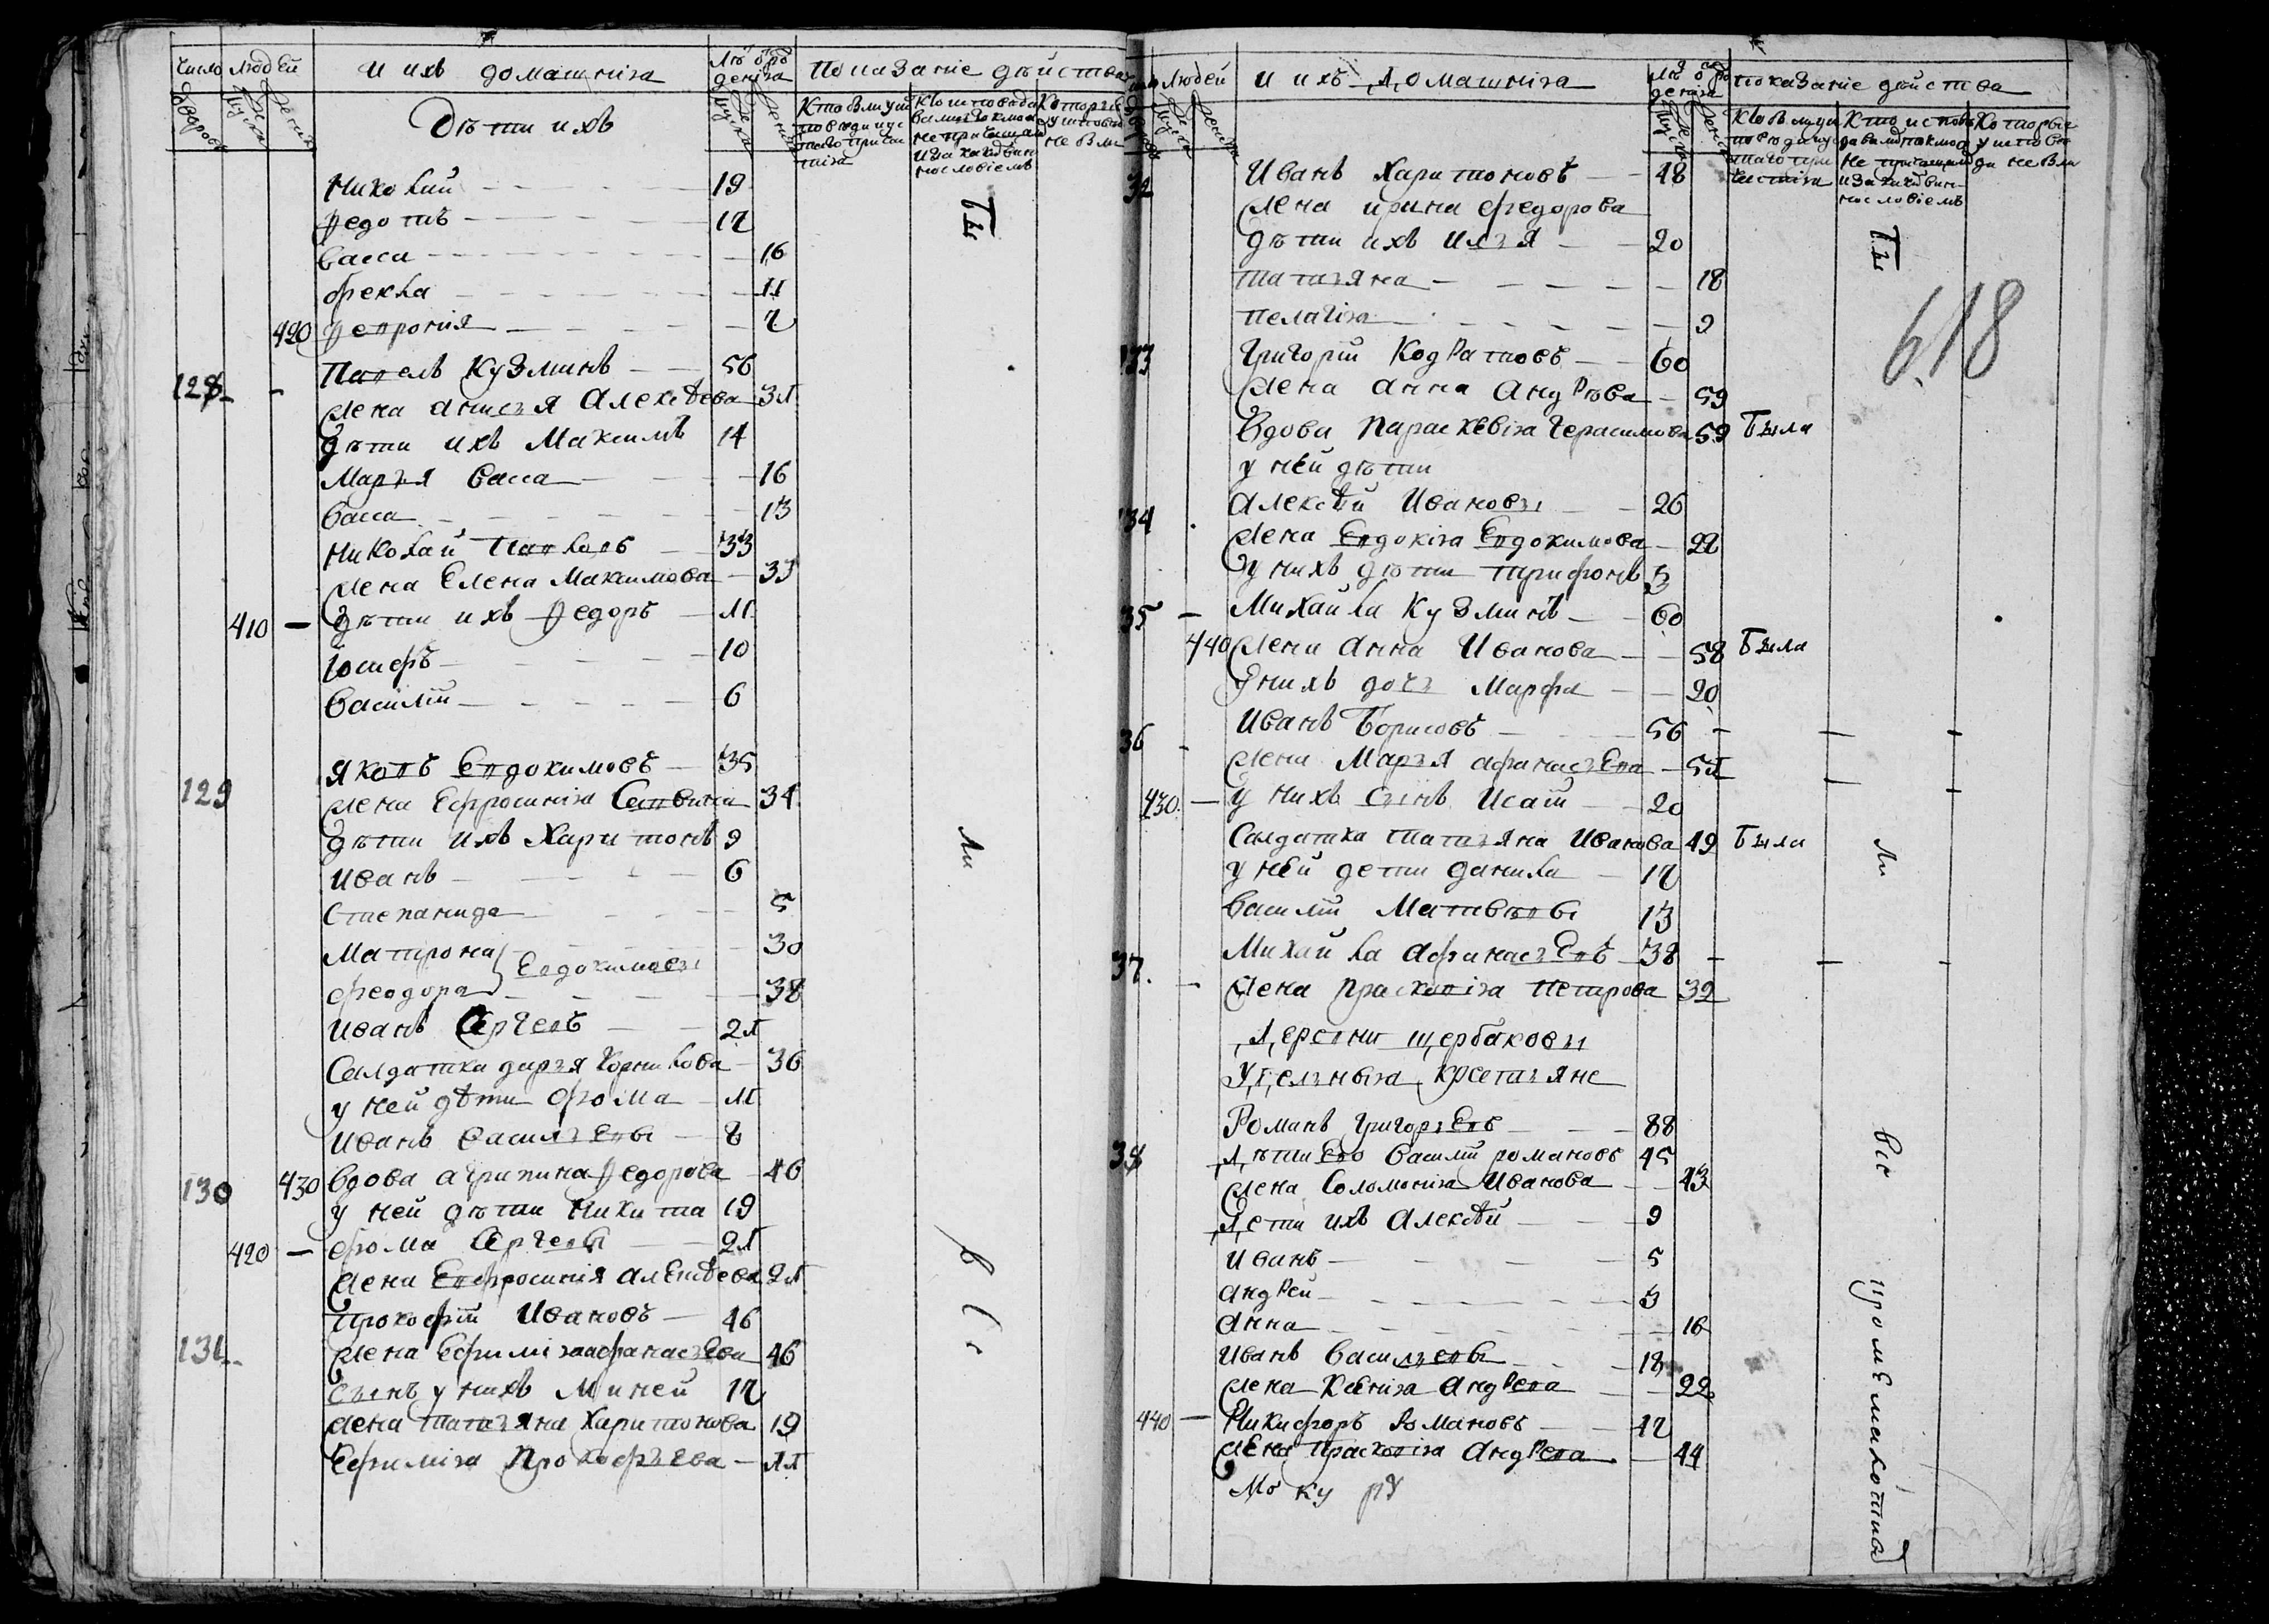 число людей и ихъ домашнiя лѣ о ро
денiя показанiе дѣйства
дворовъ мужеска женска дѣти ихъ мужеска женска
николай 19
федотъ 17
васса 16
фекла 11
420 февронiя 7
128 павелъ кузминъ 56
жена анисья алексѣева 31
дѣти ихъ максимъ 14
марья васса 16
васса 13
николай павловъ 33
жена елена максимова 33
410 — дѣти ихъ федоръ 11
iосифъ 10
василiй 6
129 яковъ евдокимовъ 35
жена ефросинiя саввина 34
дѣти ихъ харитонъ 9
иванъ 6
степанида 5
матрона 30
евдокимовы
феодора 38
иванъ сергеевъ 21
салдатка дарья корнилова 36
у ней дѣти фома 11
иванъ васильевы 8
130 430 вдова агрипина федорова 46
у ней дѣти никита 19
420 — фома сергеевы 21
жена евфросинiя алексѣева 21
131 прокофiй ивановъ 46
жена ефимiя афанасьева 46
сынъ у нихъ миней 17
жена татьяна харитонова 19
ефимiя прокофьева 11
бы
ли
в с
людей и ихъ домашнiя показанiе дѣйства
32 иванъ харитоновъ 48
жена ирина федорова
дѣти ихъ илья 20
татьяна 18
пелагiя 9
133 григорiй кодратовъ 60
жена анна андрѣва 59
вдова параскевiя герасимова 59 была
у ней дѣти
134 алексѣй ивановы 26
жена евдокiя евдокимова 22
у нихъ дѣти трифонъ 3
35 — михайла кузминъ 60
440 жена анна иванова 58 была
у нихъ дочь марфа 20
36 иванъ борисовъ 56
жена марья афанасьева 51
430 — у нихъ сынъ исай 20
салдатка татьяна иванова 49 была
у ней дети данила 17
василiй матвѣевы 13
37 михайла афанасьевъ 38
жена прасковiя петрова 39
деревни щербаковы
удельныя крестьяне
романъ григорьевъ 88
38 дѣти ево василiй романовъ 45
жена соломонiя иванова 43
дети ихъ алексѣй 9
иванъ 5
андрей 3
анна 16
иванъ васильевы 18
жена ксенiя андрева 22
440 — никифоръ романовъ 47
жена прасковiя андрева 44
бы
618
ли
вс